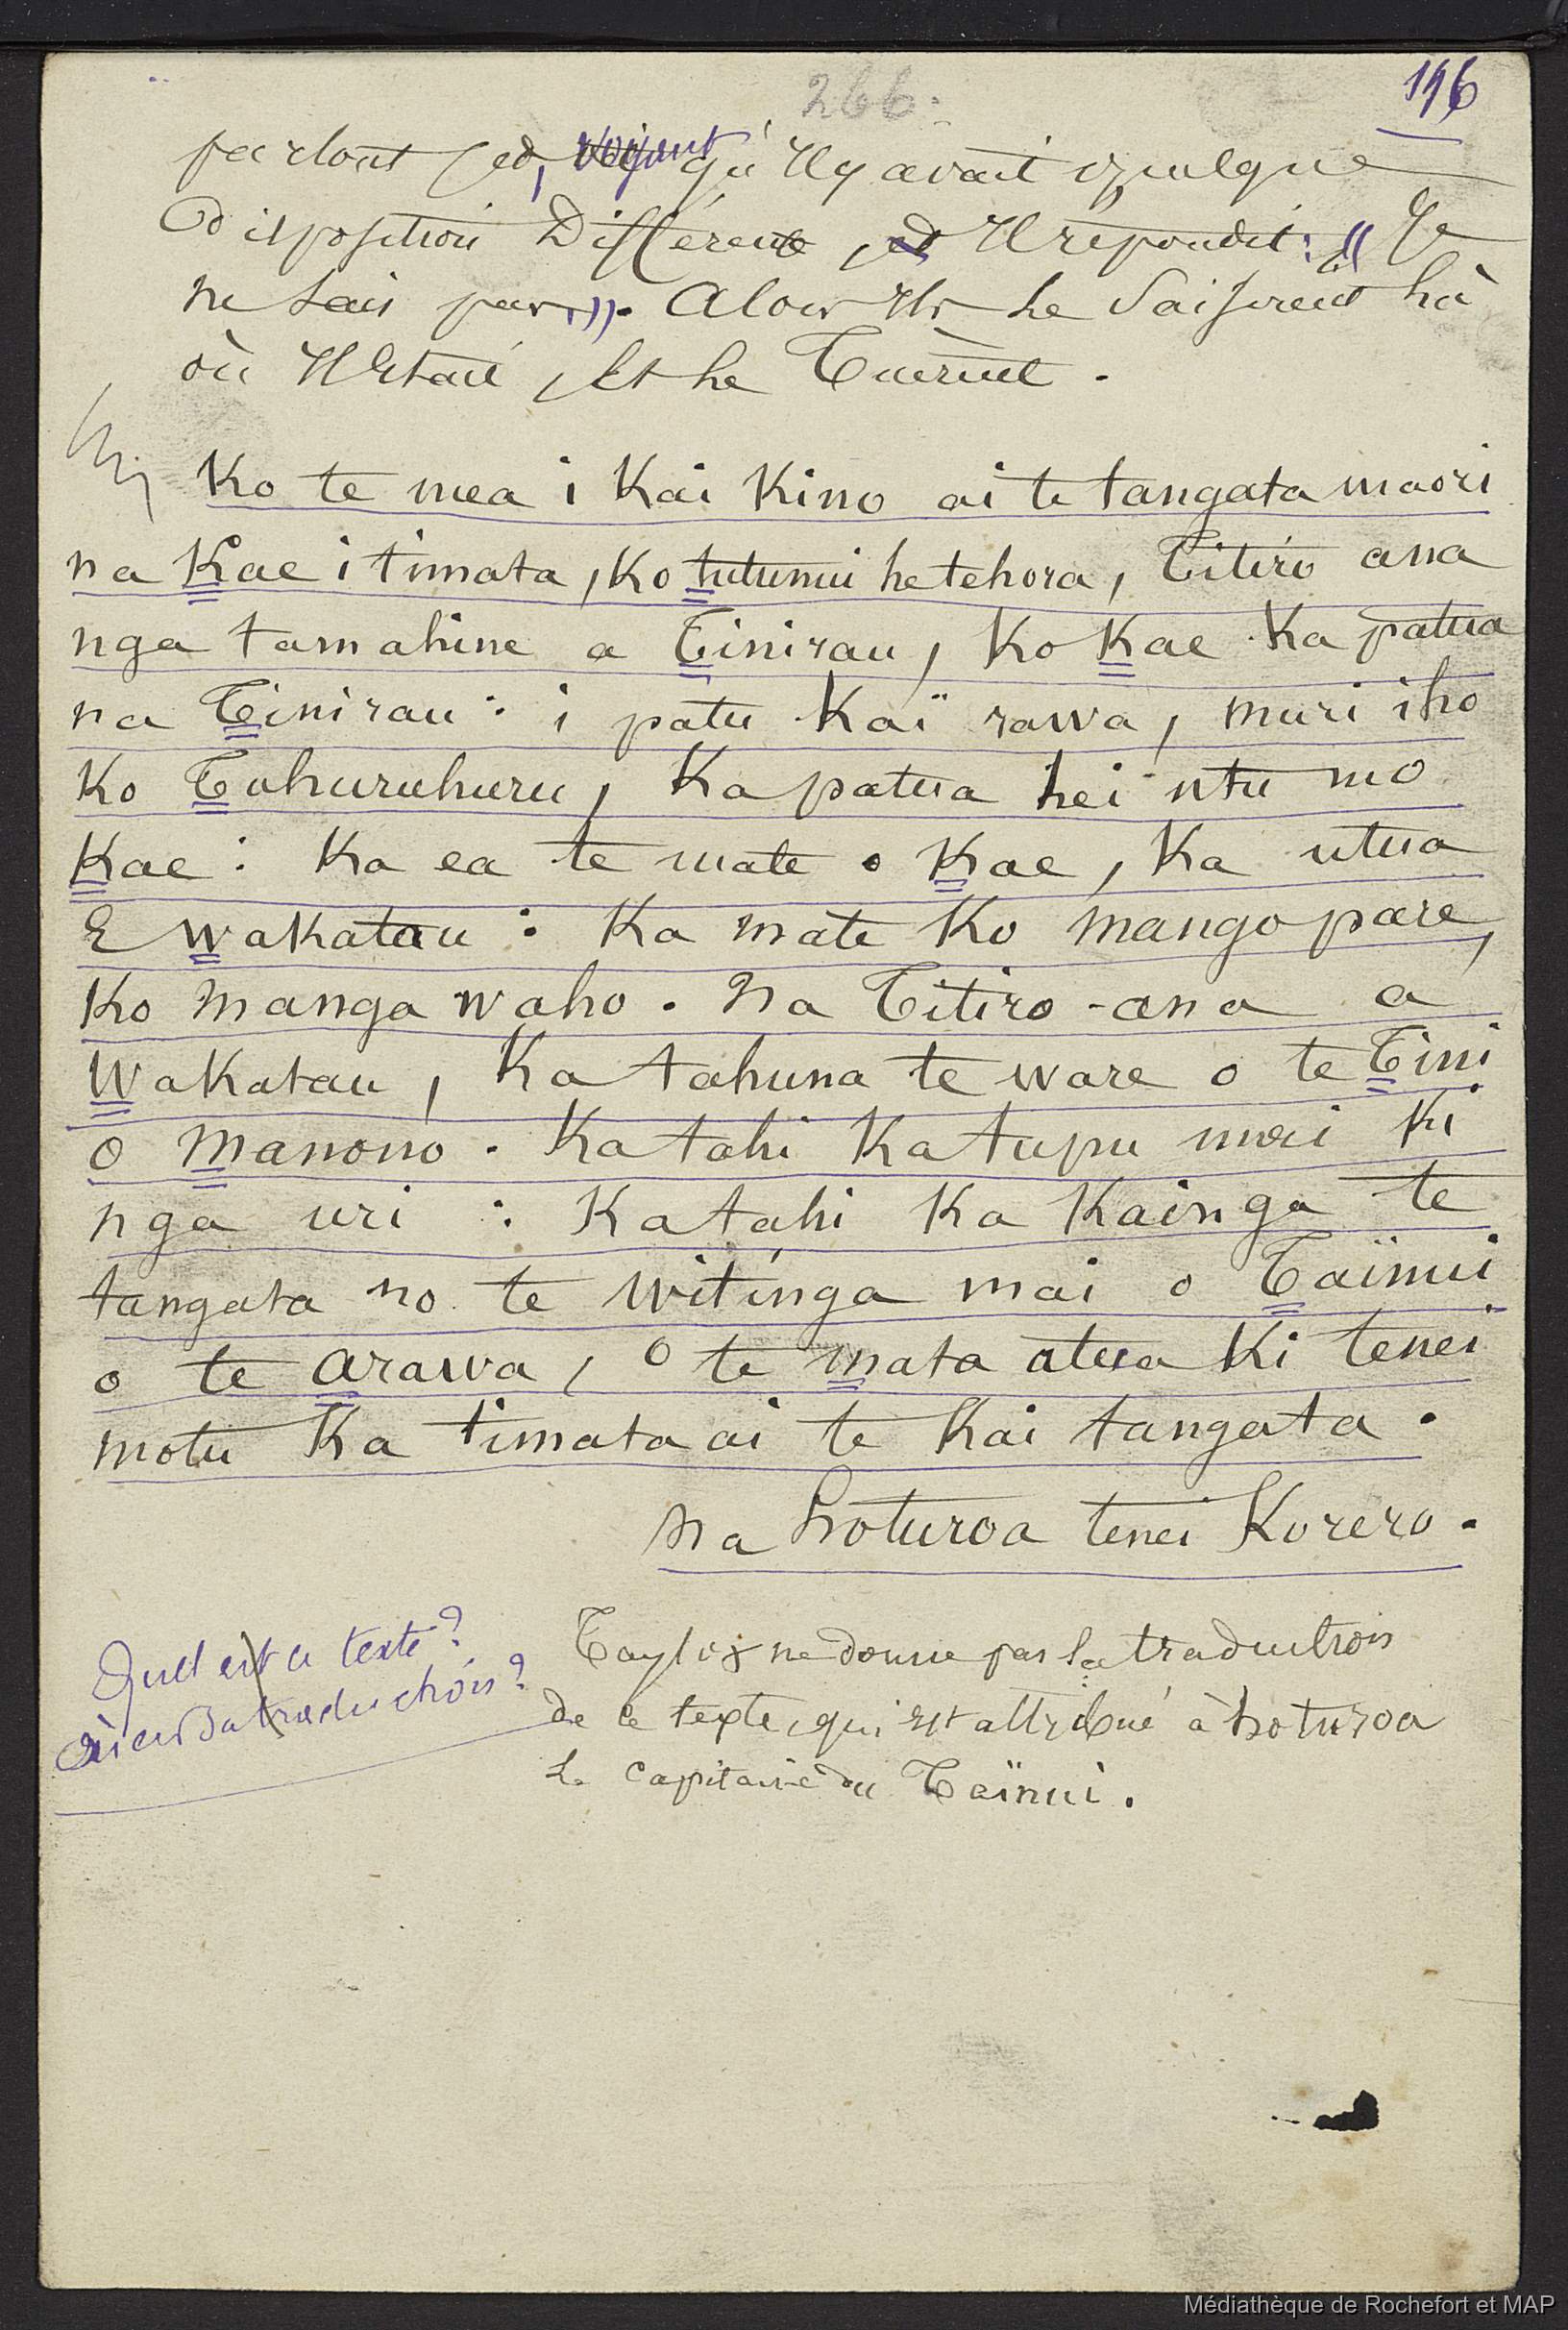 266.
196
partout et, voyant qu'il y avait quelque
disposition Différente, et Il répondit : « Je
ne sais pas, ». Alors Ils le Saisirent là
où Il Etait, Et le Tuèrent.
Ko te mea i Kai Kino ai te tangata maori
na Kae i timata, Ko tutunui hetehora, Titiro ana
nga tamahine a Tinirau, Ko Kae Ka patua
na Tinirau : i patu Kaï rawa, muri iho
Ko Tuhuruhuru, Ka patua hei utu mo
Kae : Ka ea te mate o Kae, Ka utua
E Wakatau : Ka mate Ko mangopare,
Ko manga waho. Na Titiro-ana a
Wakatau, Ka tahuna te ware o te Tini
O Manono. Katahi Ka tupu mai Ki
nga uri : Katahi Ka Kainga te
tangata no te Witinga mai o Taïnui
o te Arawa, O te mata atua Ki tenei
motu Ka timata ai te Kai tangata.
Na hoturoa tenei Korero.
Quel est ce texte?
a traduction?
Taylor ne donne pas la traduction
de ce texte, qui est attribué à hoturoa
Le Capitaine du Taïnui.
Médiathèque de Rochefort et MAP